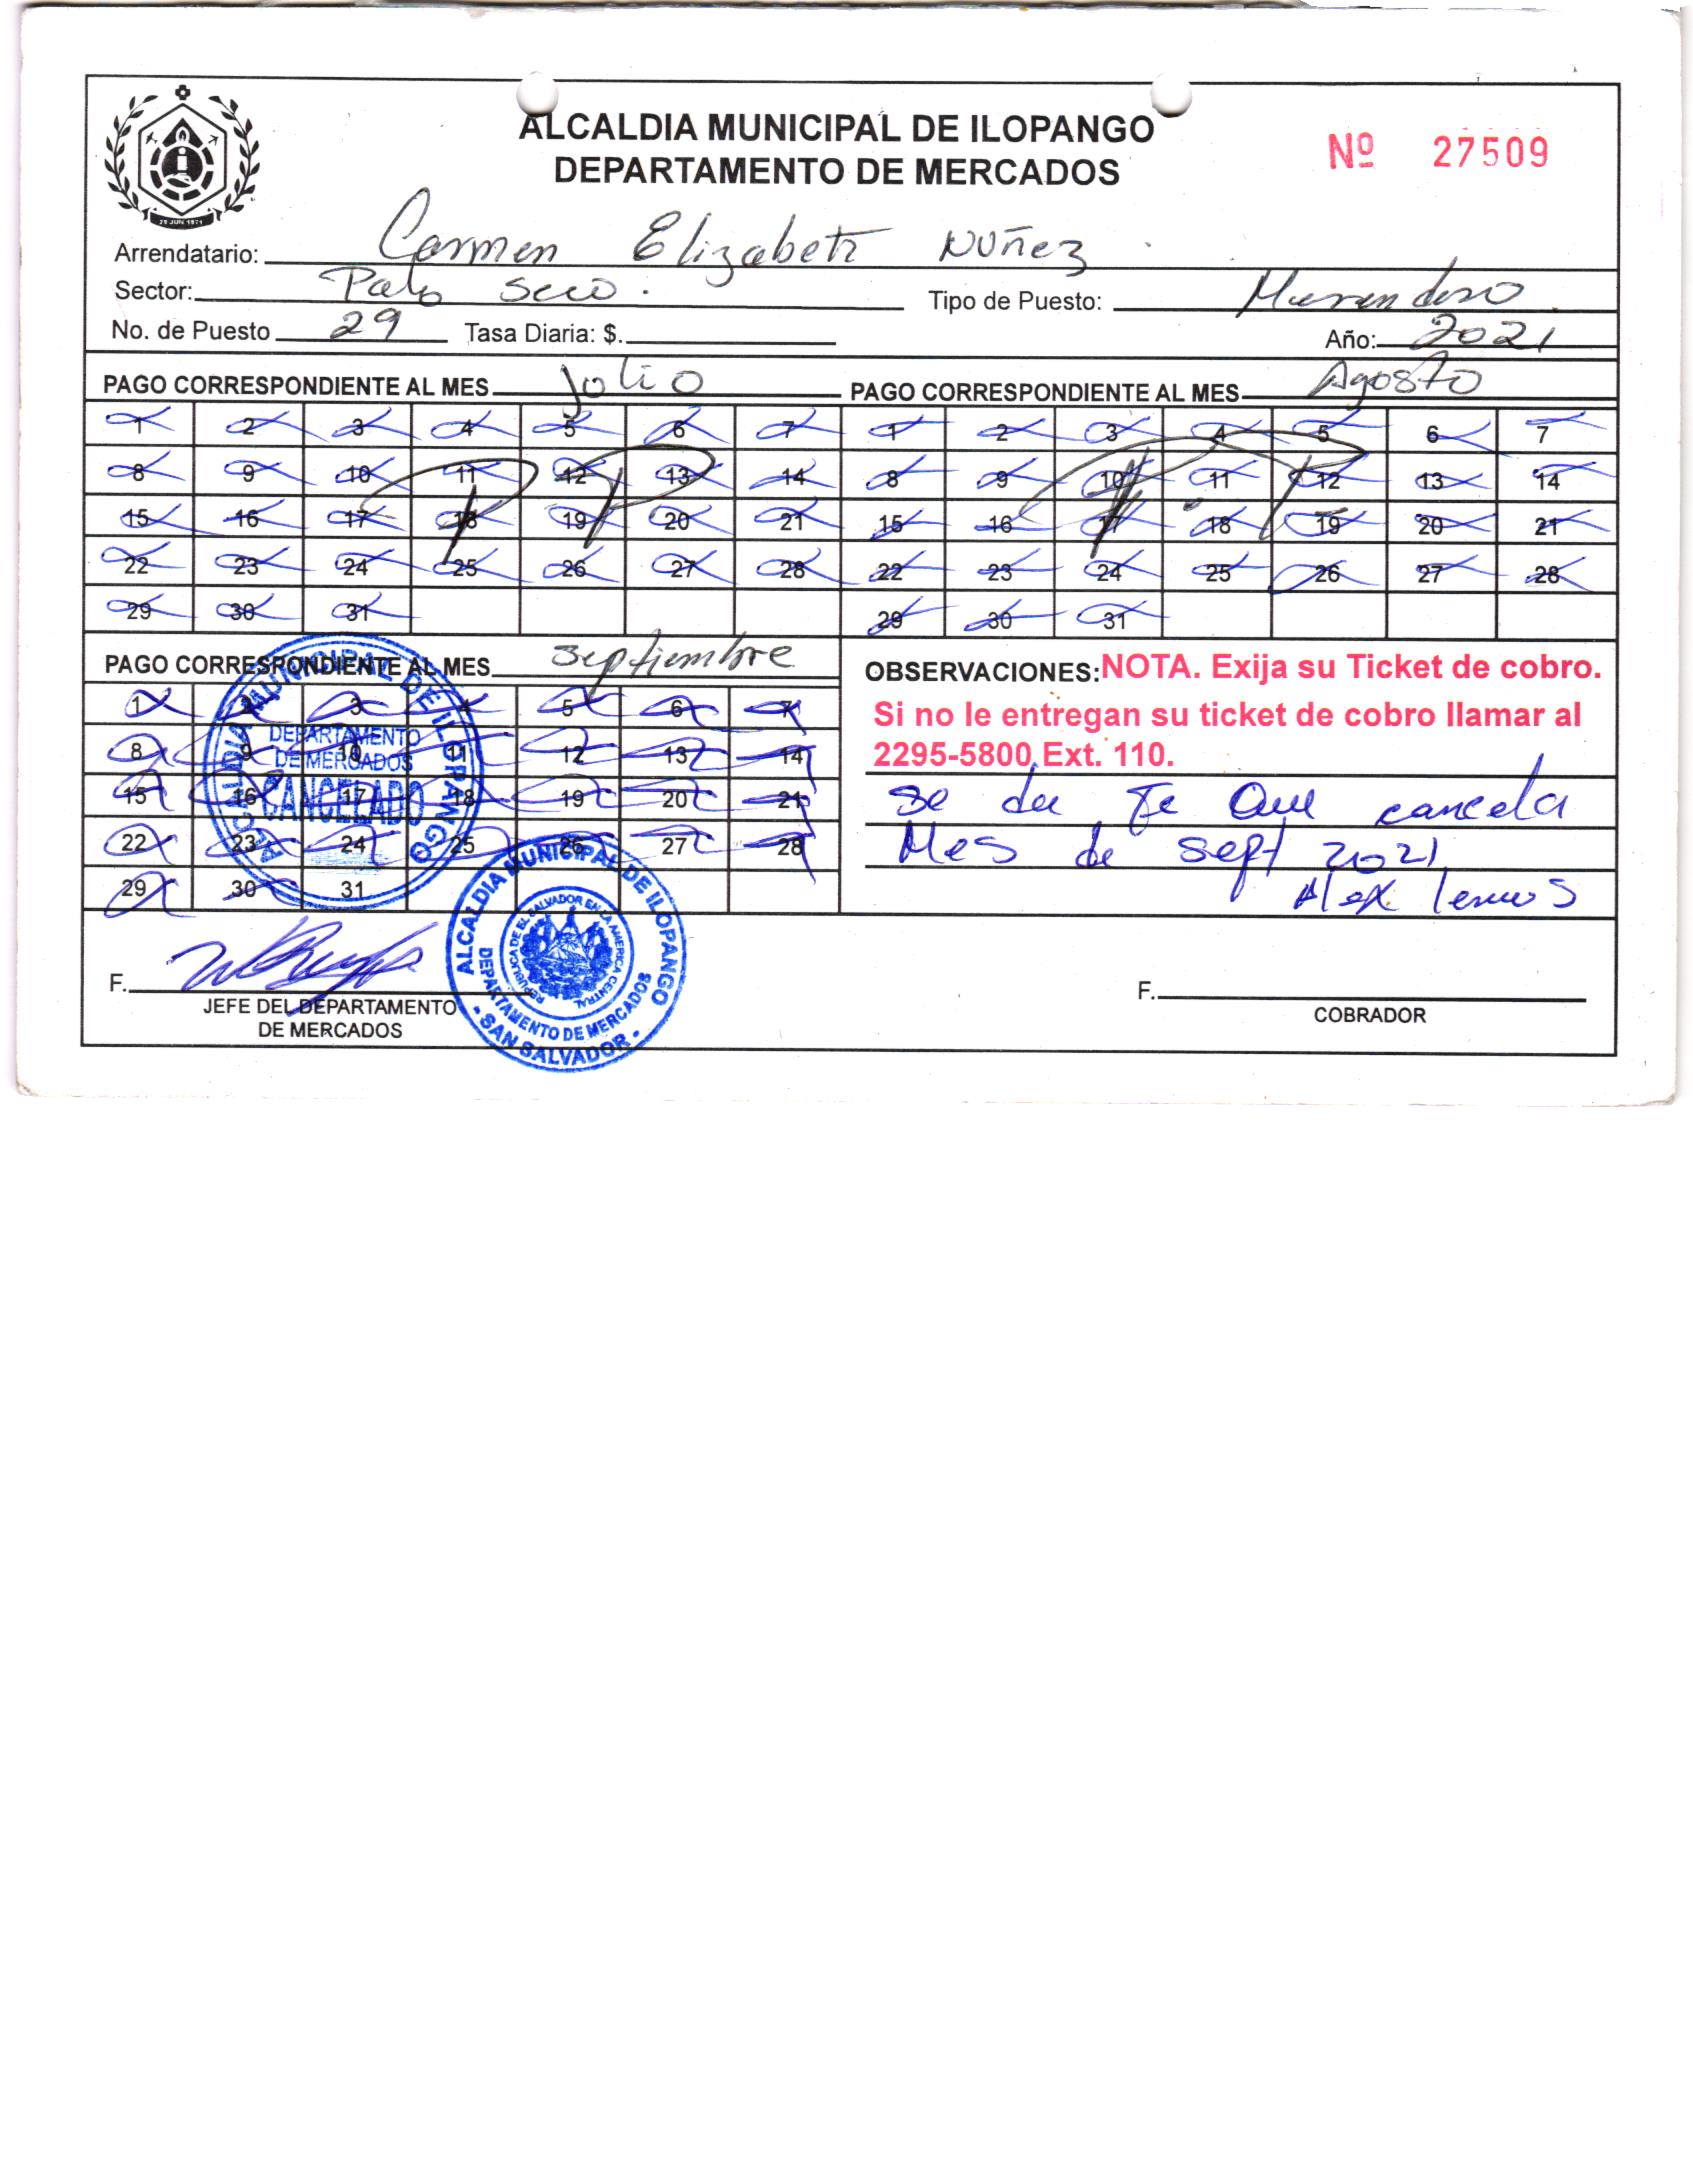 ALCALDIA MUNICIPAL DE ILOPANGO
DEPARTAMENTO DE MERCADOS
Nº 27509
28 JUN 1971
Arrendatario: Carmen Elizabeth Nuñez
Sector: Palo Seco.
Tipo de Puesto:
No. de Puesto 29 Tasa Diaria: $.
Año: 2021
PAGO CORRESPONDIENTE AL MES Julio
1 2 3 4 5 6 7
8 9 10 11 12 13 14
15 16 17 18 19 20 21
22 23 24 25 26 27 28
29 30 31
PAGO CORRESPONDIENTE AL MES Agosto
1 2 3 4 5 6 7
8 9 10 11 12 13 14
15 16 17 18 19 20 21
22 23 24 25 26 27 28
29 30 31
PAGO CORRESPONDIENTE AL MES septiembre
1 2 3 4 5 6 7
8 9 10 11 12 13 14
15 16 17 18 19 20 21
22 23 24 25 26 27 28
29 30 31
ALCALDIA MUNICIPAL DE ILOPANGO
DEPARTAMENTO
DE MERCADOS
CANCELADO
OBSERVACIONES: NOTA. Exija su Ticket de cobro.
Si no le entregan su ticket de cobro llamar al
2295-5800 Ext. 110.
se da Fe Que cancela
Mes de sept 2021
Alex lemus
F.
JEFE DEL DEPARTAMENTO
DE MERCADOS
ALCALDIA MUNICIPAL DE ILOPANGO
REPUBLICA DE EL SALVADOR EN LA AMERICA CENTRAL
DEPARTAMENTO DE MERCADOS
- SAN SALVADOR -
F.
COBRADOR